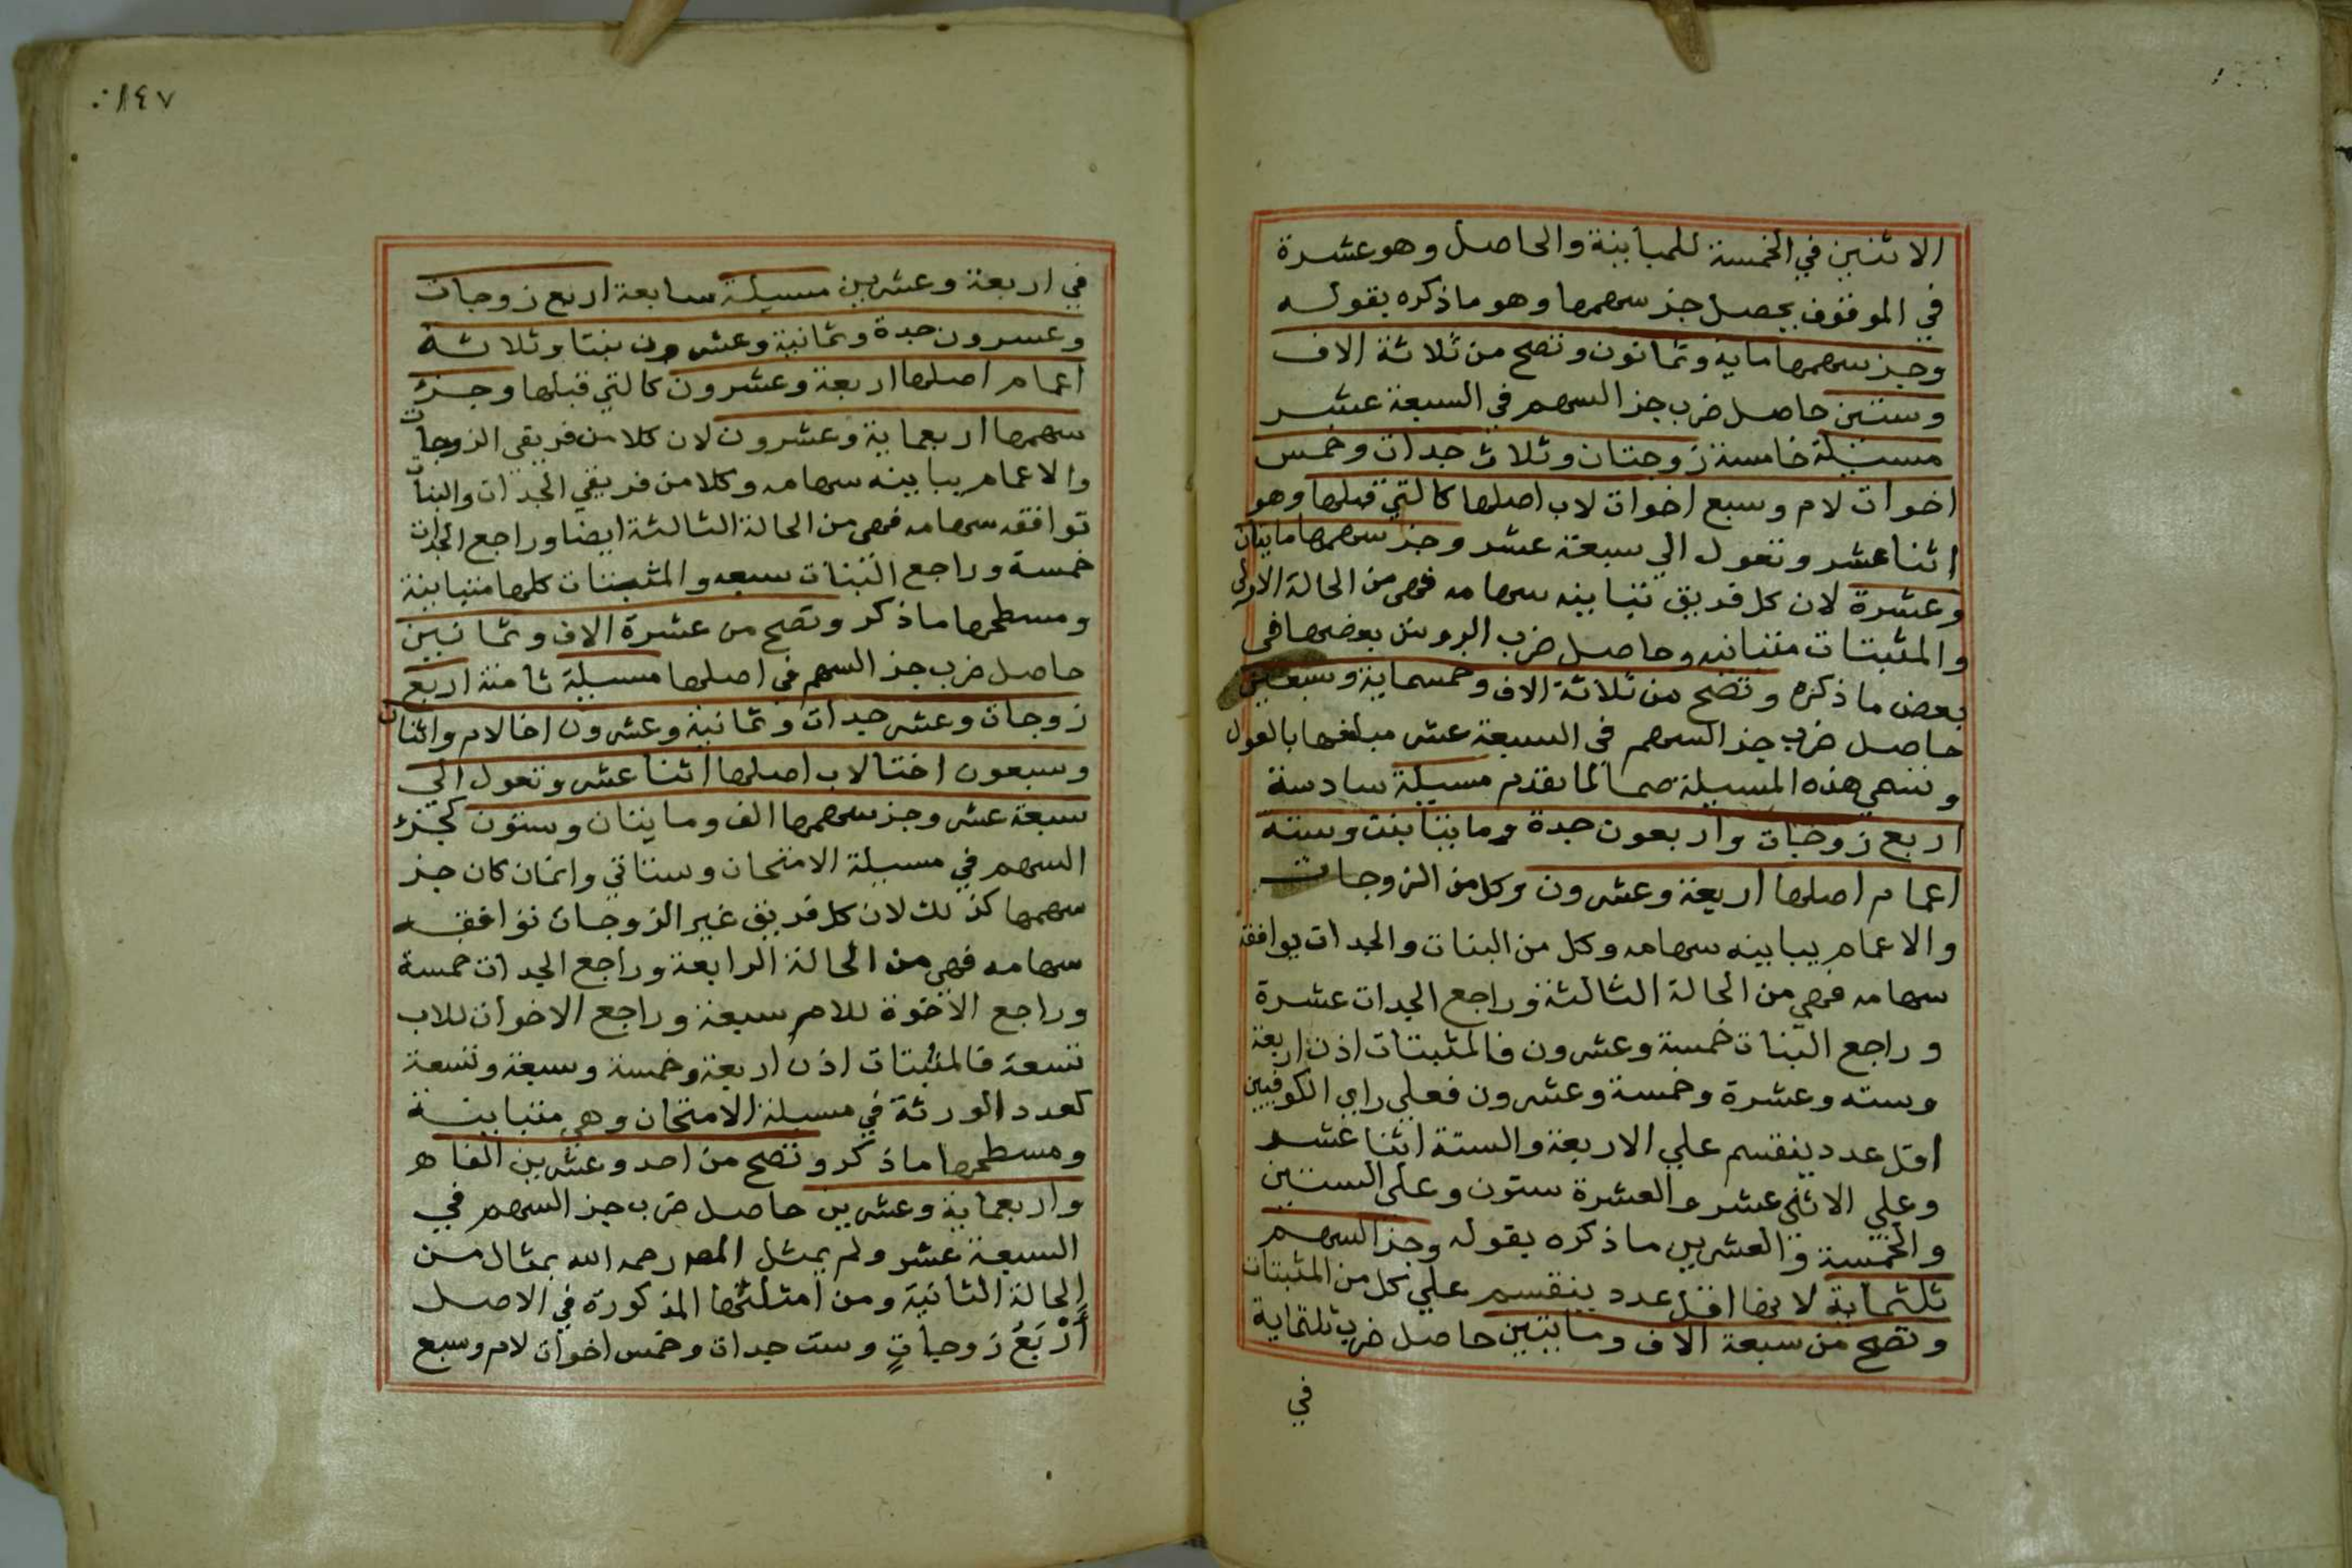 الاثنين في الخمسة للمباينة والحاصل وهو عشرة
في الموقوف يحصل جز سهمها وهو ما ذكره بقوله
وجز سهمها ماية وثمانون وتصح من ثلاثة الاف
وستين حاصل ضرب جز السهم في السبعة عشر
مسئلة خامسة زوجتان وثلاث جدات وخمس
اخوات لام وسبع اخوات لاب اصلها كالتي قبلها وهو
اثنا عشر وتعول الي سبعة عشر وجز سهمها مايتان
وعشرة لان كل فريق تباينه سهامه فهي من الحالة الاولى
والمثبتات متباينه وحاصل ضرب الروس بعضها في
بعض ما ذكره وتصح من ثلاثة الاف وخمسماية وسبعين
حاصل ضرب جز السهم في السبعة عشر مبلغها بالعول
وتسمي هذه المسيلة صما لما تقدم مسيلة سادسة
اربع زوجات واربعون جدة ومايتا بنت وسته
اعمام اصلها اربعة وعشرون وكل من الزوجات
والاعمام يباينه سهامه وكل من البنات والجدات يوافقه
سهامه فهي من الحالة الثالثة وراجع الجدات عشرة
وراجع البنات خمسة وعشرون فالمثبتات اذن اربعة
وسته وعشرة وخمسة وعشرون فعلي راي الكوفيين
اقل عدد ينقسم علي الاربعة والستة اثنا عشر
وعلي الاثني عشر والعشرة ستون وعلى الستين
والخمسة والعشرين ما ذكره بقوله وجز السهم
ثلثماية لانها اقل عدد ينقسم علي كل من المثبتات
وتصح من سبعة الاف ومايتين حاصل ضرب ثلثماية
في
١٤٧
في اربعة وعشرين مسيلة سابعة اربع زوجات
وعشرون جدة وثمانية وعشرون بنتا وثلاثة
اعمام اصلها اربعة وعشرون كالتي قبلها وجزء
سهمها اربعماية وعشرون لان كلا من فريقي الزوجات
والاعمام يباينه سهامه وكلا من فريقي الجدات والبنات
توافقه سهامه فهي من الحالة الثالثة ايضا وراجع الجدات
خمسة وراجع البنات سبعه والمثبتات كلها متباينة
ومسطحها ما ذكر وتصح من عشرة الاف وثمانين
حاصل ضرب جز السهم في اصلها مسيلة ثامنة اربع
زوجات وعشر جدات وثمانية وعشرون اخا لام واثنان
وسبعون اختا لاب اصلها اثنا عشر وتعول الي
سبعة عشر وجز سهمها الف ومايتان وستون كجزء
السهم في مسيلة الامتحان وستاتي وانما كان جز
سهمها كذلك لان كل فريق غير الزوجات توافقه
سهامه فهي من الحالة الرابعة وراجع الجدات خمسة
وراجع الاخوة للام سبعة وراجع الاخوات للاب
تسعة فالمثبتات اذن اربعة وخمسة وسبعة وتسعة
كعدد الورثة في مسيلة الامتحان وهي متباينة
ومسطحها ما ذكر وتصح من احد وعشرين الفا
واربعماية وعشرين حاصل ضرب جز السهم في
السبعة عشر ولم يمثل المص رحمه الله بمثال من
الحالة الثانية ومن امثلتها المذكورة في الاصل
أَرْبَعُ زوجاتٍ وست جدات وخمس اخوات لام وسبع